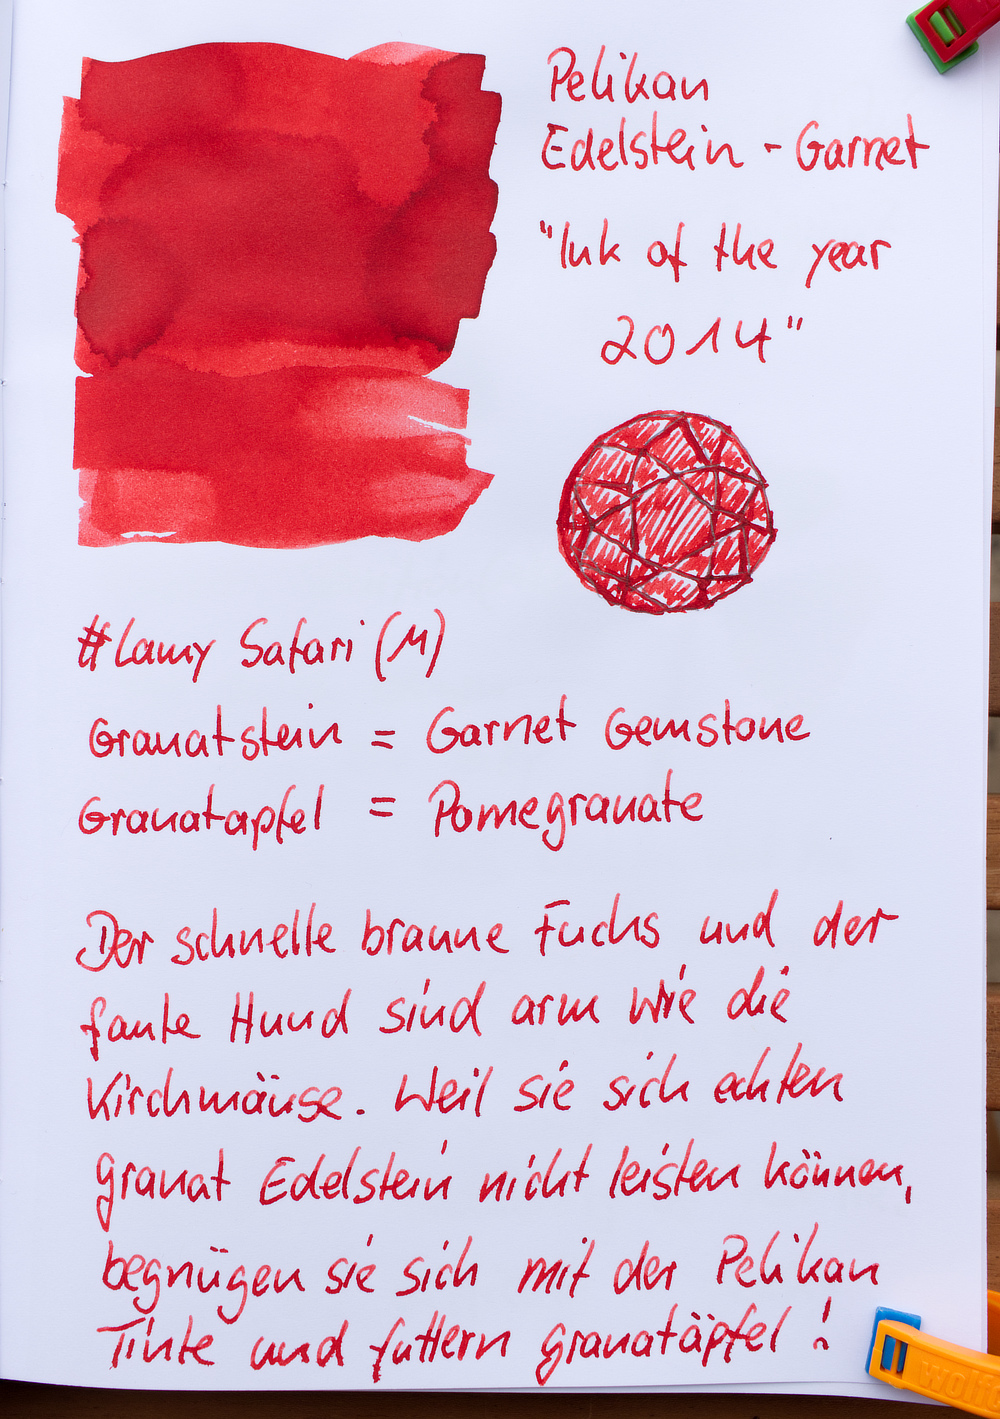 Pelikan
Edelstein - Garnet
"Ink of the year
2014"
#Lamy Safari (M)
Granatstein = Garnet Gemstone
Granatapfel = Pomegranate
Der schnelle braune Fuchs und der
faule Hund sind arm wie die
Kirchmäuse. Weil sie sich echten
granat Edelstein nicht leisten können,
begnügen sie sich mit der Pelikan
Tinte und futtern granatäpfel!